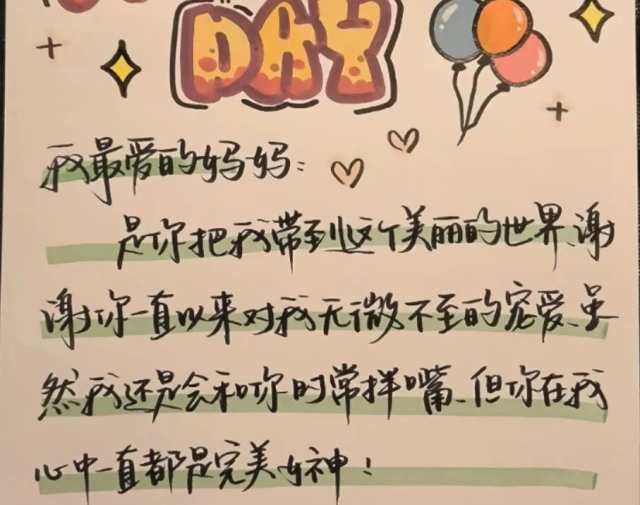 DAY
我最爱的妈妈:
是你把我带到这个美丽的世界、谢
谢你一直以来对我无微不至的宠爱、虽
然我还是会和你时常拌嘴、但你在我
心中一直都是完美女神!